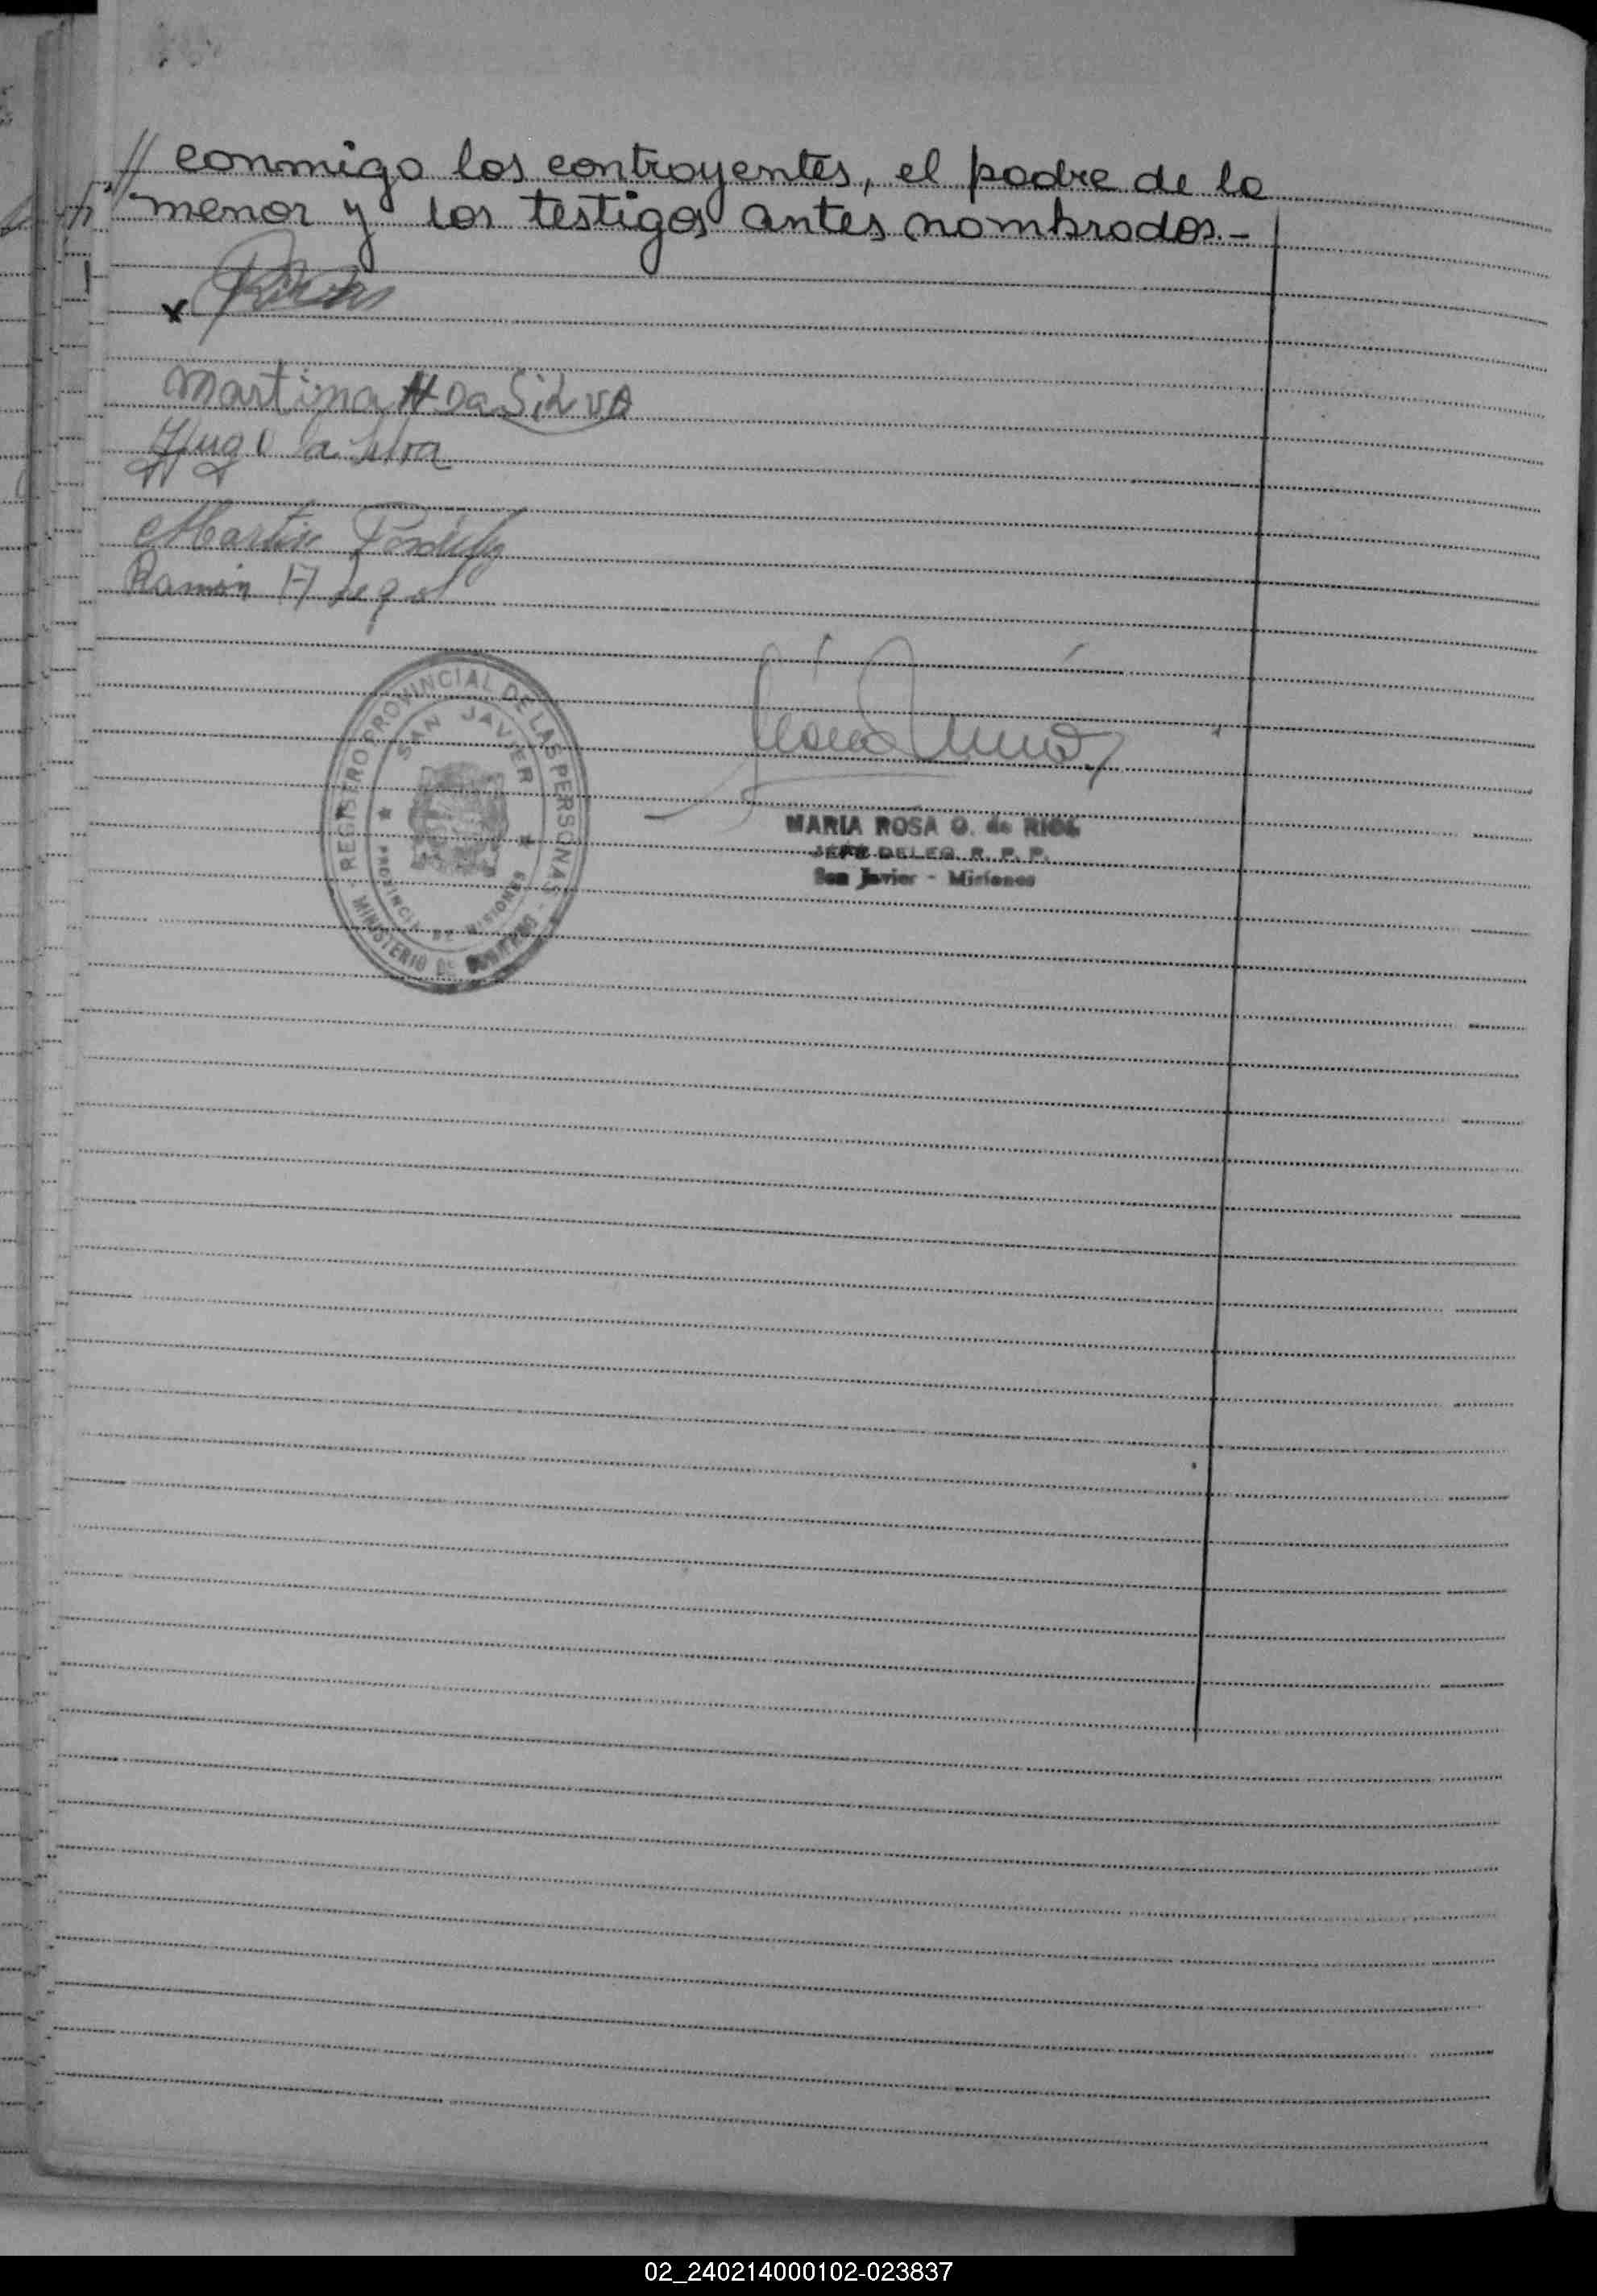 // conmigo los contrayentes, el padre de la
menor y los testigos antes nombrados.-
x
Martina H Da SiLVA
Hugo Da Silva
Martin
Ramón A
REGISTRO PROVINCIAL DE LAS PERSONAS
SAN JAVIER
PROVINCIA DE MISIONES
MINISTERIO DE GOBIERNO
MARIA ROSA G. de RIOS
JEFE DELEG. R. P. P.
San Javier - Misiones
02_240214000102-023837